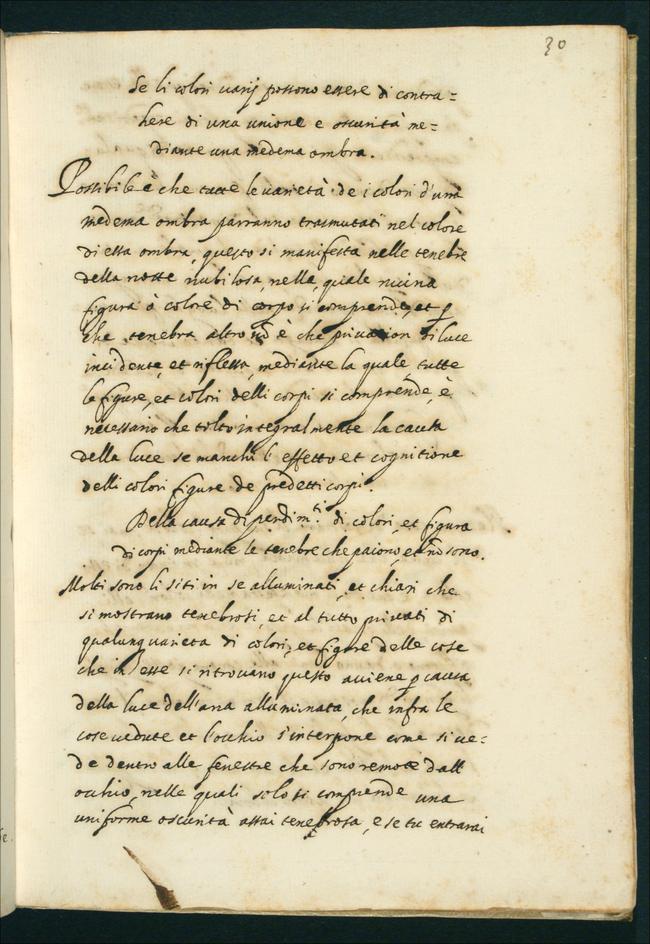 30
Se li colori varij possono essere di contra=
here di una unione e oscurità me=
diante una medema ombra.
Possibile è che tutte le varietà de i colori d'una
medema ombra parranno trasmutati nel colore
di essa ombra, questo si manifesta nelle tenebre
della notte nubilosa, nella quale niuna
figura ò colore di corpo si comprende, et p
che tenebra altro nō è che privation di luce
incidente, et riflessa, mediante la quale tutte
le figure, et colori delli corpi si comprende, è
necessario che tolto integralmente la causa
della luce se manchi l'effetto et cognitione
delli colori figure de predetti corpi.
Della causa di perdim.ti di colori, et figura
di corpi mediante le tenebre che paiono, et nō sono.
Molti sono li siti in se alluminati, et chiari che
si mostrano tenebrosi, et al tutto privati di
qualunq varieta di colori, et figure delle cose
che in esse si ritrovano questo aviene p causa
della luce dell'aria alluminata, che infra le
cose vedute et l'occhio s'interpone come si ve=
de dentro alle fenestre che sono remote dall
occhio, nelle quali solo si comprende una
uniforme oscurità assai tenebrosa, e se tu entrarai